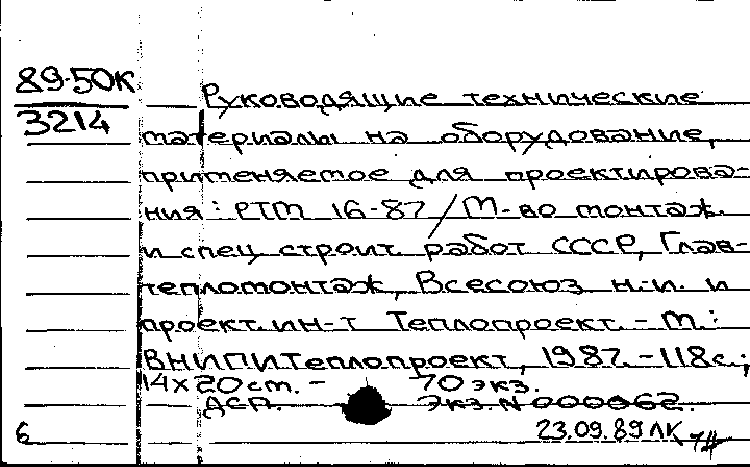 89-50К
3214
Руководящие технические
материалы на оборудование,
применяемое для проектирова-
ния: РТМ 16-87/М-во монтаж.
и спец строит. работ СССР, Глав-
тепломонтаж, Всесоюз. н.-и. и
проект. ин-т Теплопроект. - М.:
ВНИПИТеплопроект, 1987. - 118 с.;
14х20 см. - 70 экз.
ДСП. Экз. N 000062.
6 23.09.89 ЛК